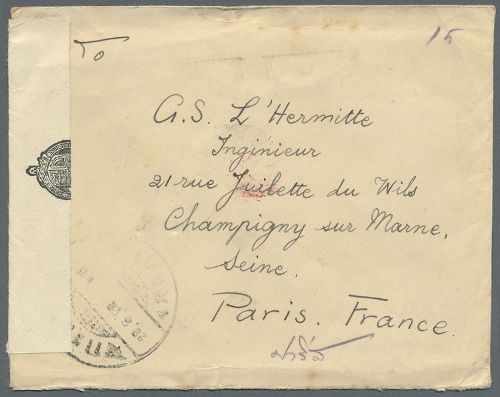 To
15
G.S. L'Hermitte
Inginieur
21 rue Juilette du Wils
Champigny sur Marne,
Seine.
Paris. France.
ปารีส